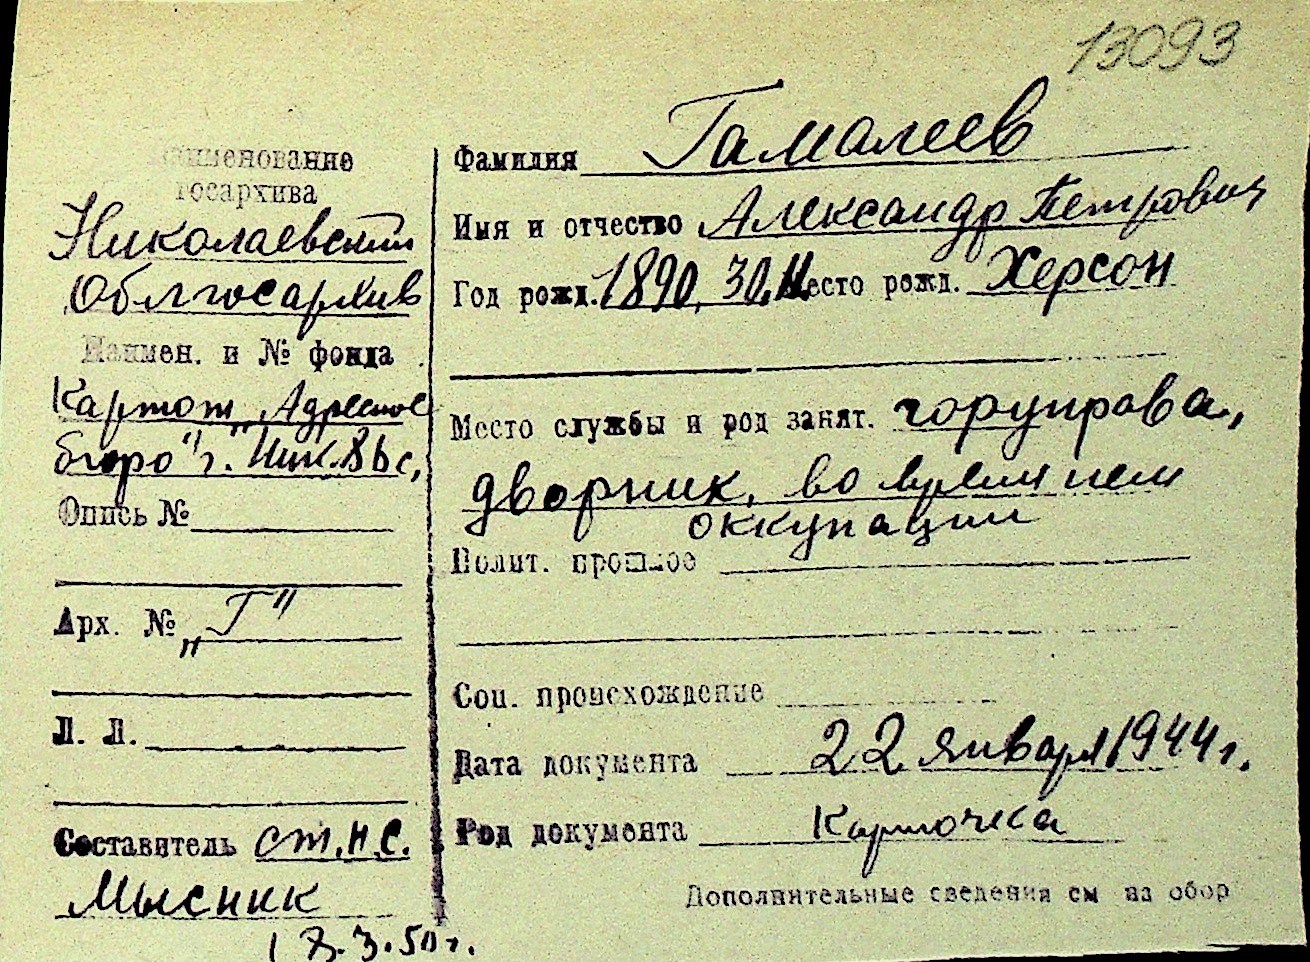 13093
Наименование
госархива
Николаевский
Облгосархив
Наимен. и № фонда
Картот. „Адресное
бюро" г. Ник.
Опись №
Арх. № „Г"
Л. Л.
Составитель ст. н. с.
Мысник
18.3.50 г.
Фамилия Гамалеев
Имя и отчество Александр Петрович
Год рожд. 1890, 30. Место рожд. Херсон
Место службы и род занят. горуправа,
дворник, во время нем
оккупации
Полит. прошлое
Соц. происхождение
Дата документа 22 января 1944 г.
Род документа Карточка
Дополнительные сведения см на обор